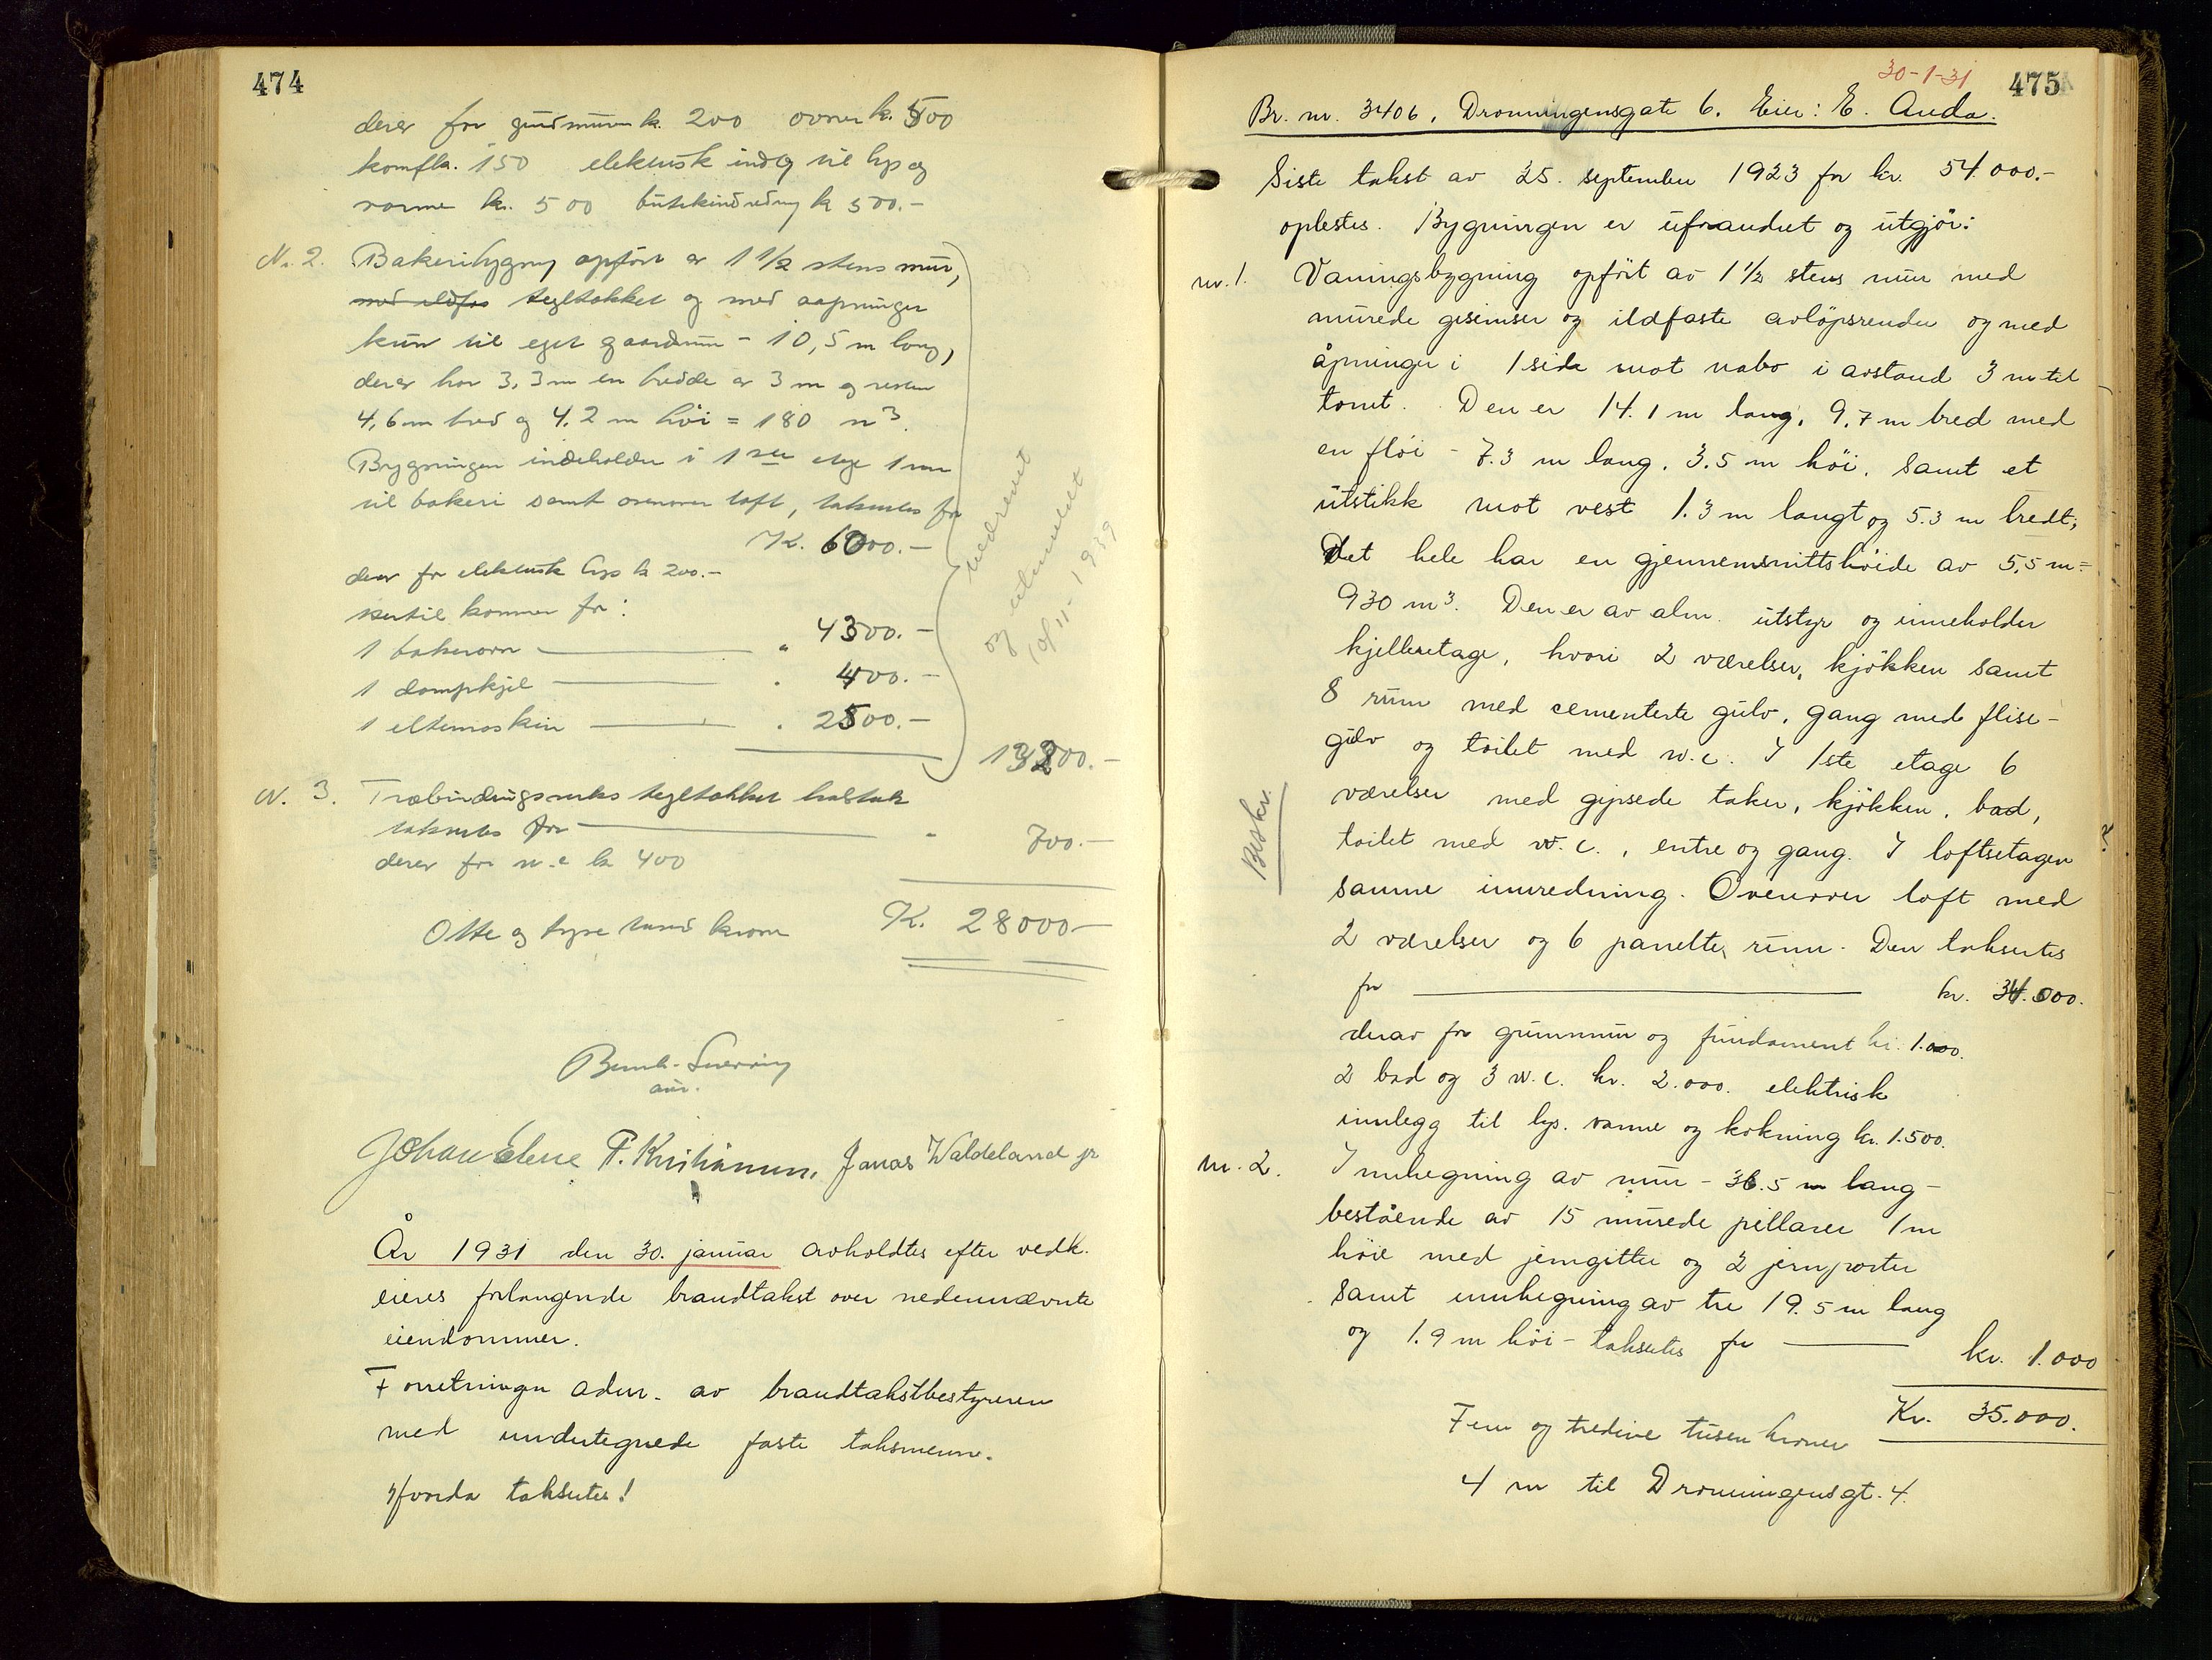 474
derav for grundmuren k. 200 ovner k. 500
komfkr. 150 elektrisk indlg til lys og
varme kr. 500 butikindredng k 500.-
N. 2. Bakeribygng opført av 1 1/2 stens mur,
med ildfas tegltakket og med aapninger
kun til eget gaardsrum - 10,5 m lang,
derav har 3,3 m en bredde av 3 m og resten
4,6 m bred og 4,2 m høi = 180 m3.
Bygningen indeholder i 1ste etage 1 rum
til bakeri samt ovenover loft, takseres for
K. 6000.-
derav for elektrisk lys k 200.-
hertil kommer for:
1 bakerovn " 4300.-
1 dampkjel " 400.-
1 eltemaskin " 2500.-
13200.-
nedrevet
og utmeldt
10/11-1939
N. 3. Træbindingsverks tegltakket halvtak
takseres for " 700.-
derav for w.c k 400
Otte og tyve tusind kroner K. 28000-
Johan Elene P. Kristiansen, Jonas Waldeland jr
År 1931 den 30. januar avholdtes efter vedk.
eieres forlangende brandtakst over nedennævnte
eiendommer.
Forretningen adm. av brandtakstbestyreren
med undertegnede faste taksmenn.
Hvorda takseres!
30-1-31
475
Br. nr. 3406, Dronningensgate 6. Eier: E. Auda.
Siste takst av 25. september 1923 for kr. 54.000.-
oplestes. Bygningen er uforandret og utgjör:
nr. 1. Vaningsbygning opfört av 1 1/2 stens mur med
murede gesimser og ildfaste avlöpsrender og med
åpninger i 1 side mot nabo i avstand 3 m til
tomt. Den er 14.1 m lang, 9,7 m bred med
en flöi - 7.3 m lang, 3.5 m höi, samt et
utstikk mot vest 1.3 m langt og 5.3 m bredt;
Det hele har en gjennemsnittshöide av 5,5 m =
930 m3. Den er av alm. utstyr og inneholder
kjelleretage, hvori 2 værelser, kjökken samt
8 rum med cementerte gulv, gang med flise-
gulv og toilet med w.c. I 1ste etage 6
værelser med gipsede taker, kjökken, bad,
toilet med w.c., entre og gang. I loftsetagen
samme innredning. Ovenover loft med
2 værelser og 6 panelte rum. Den takseres
for kr. 34.000.
Beskr.
derav for grunnmur og fundament kr. 1.000.
2 bad og 3 w.c. kr. 2.000. elektrisk
innlegg til lys. varme og kokning kr. 1.500.
nr. 2. Innhegning av mur - 36.5 m lang -
bestående av 15 murede pillarer 1 m
höie med jerngitter og 2 jernporter
samt innhegning av tre 19.5 m lang
og 1.9 m höi - takseres for kr. 1.000
Kr. 35.000.
Fem og tredive tusen kroner
4 m til Dronningensgt. 4.